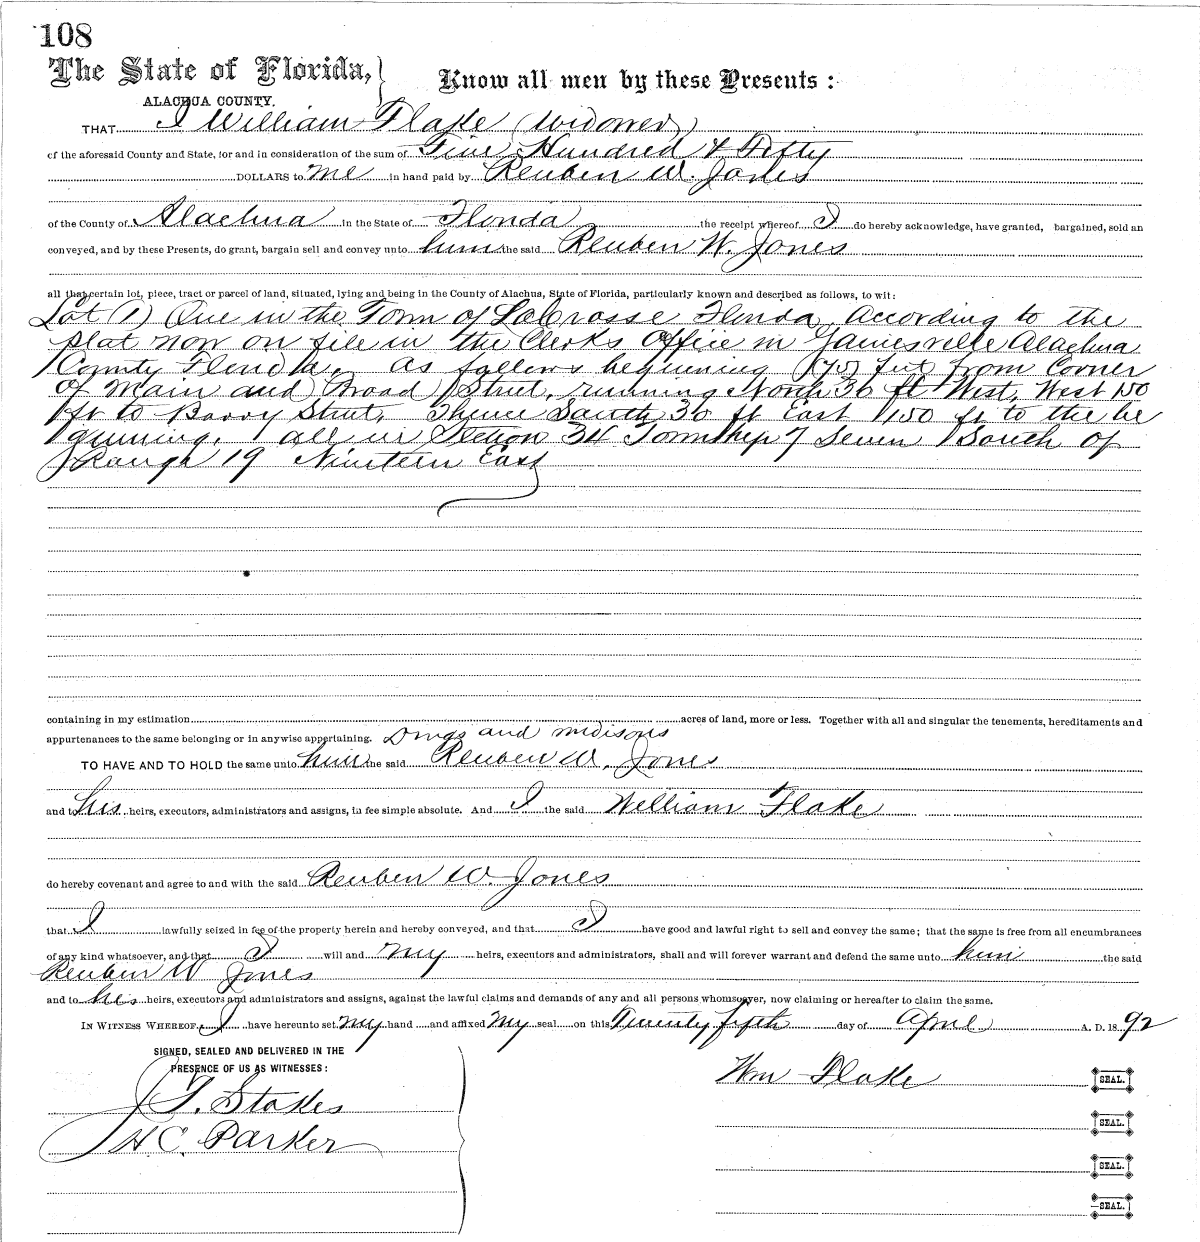 108
The State of Florida,
ALACHUA COUNTY.
Know all men by these Presents :
THAT I William Flake (Widowed)
of the aforesaid County and State, for and in consideration of the sum of Five Hundred & Fifty
DOLLARS to me in hand paid by Reuben W. Jones
of the County of Alachua in the State of Florida the receipt whereof I do hereby acknowledge, have granted, bargained, sold an
conveyed, and by these Presents, do grant, bargain sell and convey unto him the said Reuben W. Jones
all that certain lot, piece, tract or parcel of land, situated, lying and being in the County of Alachus, State of Florida, particularly known and described as follows, to wit:
Lot (1) One in the Town of LaCrosse Florida, According to the
plat now on file in the Clerks Office in Gainesville Alachua
County Florida. As follows beginning feet from Corner
of Main and Broad Street, running North 36 ft West, West 150
ft to Barry Street, Thence South 36 ft East 150 ft to the be
ginning. all in Section 34 Township 7 Seven South of
Raugh 19 Ninteen East
containing in my estimation acres of land, more or less. Together with all and singular the tenements, hereditaments and
appurtenances to the same belonging or in anywise appertaining. Drugs and midisons
TO HAVE AND TO HOLD the same unto him the said Reuben W. Jones
and to his heirs, executors, administrators and assigns, in fee simple absolute. And I the said William Flake
do hereby covenant and agree to and with the said Reuben W. Jones
that I lawfully seized in fee of the property herein and hereby conveyed, and that I have good and lawful right to sell and convey the same; that the same is free from all encumbrances
of any kind whatsoever, and that I will and my heirs, executors and administrators, shall and will forever warrant and defend the same unto him the said
Reuben W Jones
and to his heirs, executors and administrators and assigns, against the lawful claims and demands of any and all persons whomsoever, now claiming or hereafter to claim the same.
IN WITNESS WHEREOF, I have hereunto set my hand and affixed my seal on this Twenty fifth day of April A. D. 1892
SIGNED, SEALED AND DELIVERED IN THE
PRESENCE OF US AS WITNESSES:
J T. Stokes
H C. Parker
Wm Flake SEAL.
SEAL.
SEAL.
SEAL.